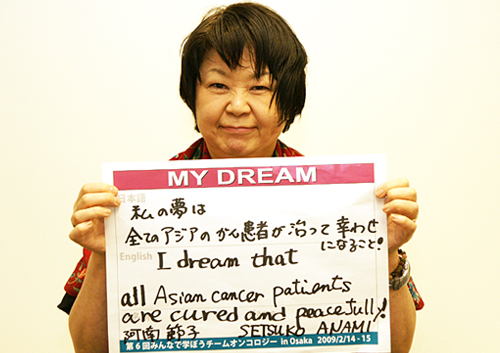 MY DREAM
日本語
私の夢は
全てのアジアのがん患者が治って幸わせ
になること!
English I dream that
all Asian cancer patients
are cured and peacefully!
阿南 節子 SETSUKO ANAMI
第6回みんなで学ぼうチームオンコロジー in Osaka 2009/2/14-15